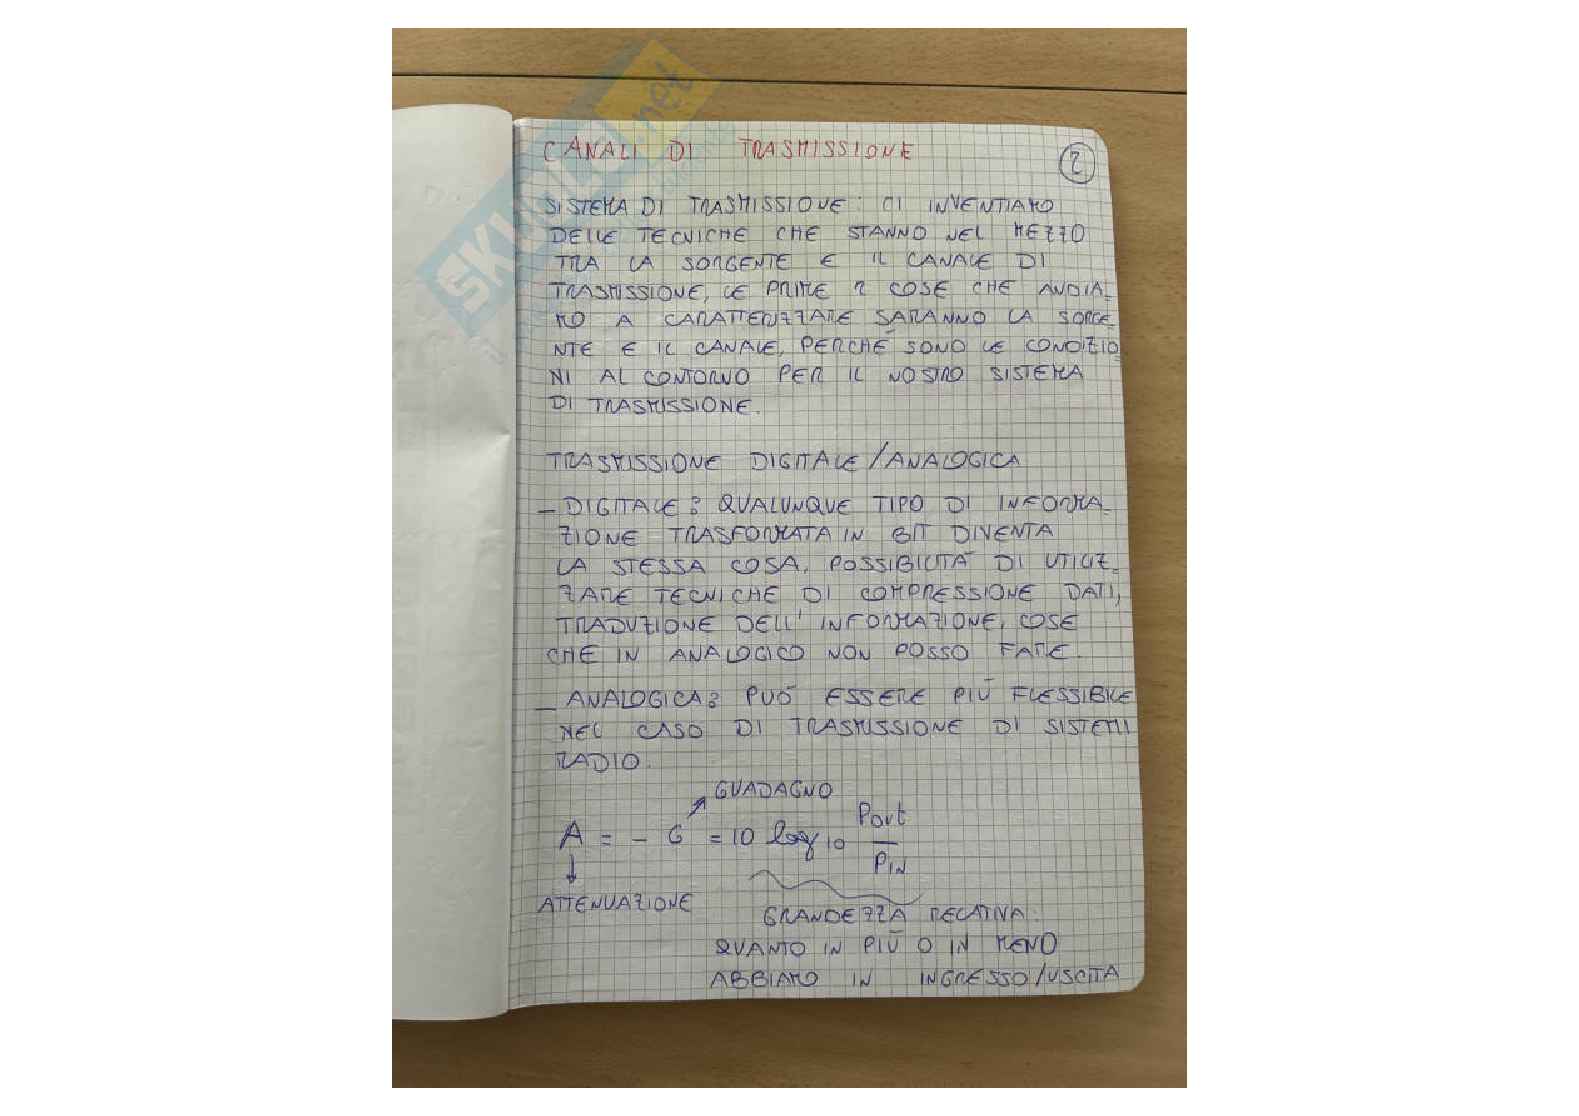 CANALI DI TRASMISSIONE
2
SISTEMA DI TRASMISSIONE: CI INVENTIAMO
DELLE TECNICHE CHE STANNO NEL MEZZO
TRA LA SORGENTE E IL CANALE DI
TRASMISSIONE, LE PRIME 2 COSE CHE ANDIA_
MO A CARATTERIZZARE SARANNO LA SORGE_
NTE E IL CANALE, PERCHÉ SONO LE CONDIZIO_
NI AL CONTORNO PER IL NOSTRO SISTEMA
DI TRASMISSIONE.
TRASMISSIONE DIGITALE/ANALOGICA
- DIGITALE: QUALUNQUE TIPO DI INFORMA_
ZIONE TRASFORMATA IN BIT DIVENTA
LA STESSA COSA, POSSIBILITÀ DI UTILIZ_
ZARE TECNICHE DI COMPRESSIONE DATI,
TRADUZIONE DELL'INFORMAZIONE, COSE
CHE IN ANALOGICO NON POSSO FARE.
- ANALOGICA: PUÒ ESSERE PIÙ FLESSIBILE
NEL CASO DI TRASMISSIONE DI SISTEMI
RADIO.
GUADAGNO
A = - G = 10 log10 Pout / PIN
ATTENUAZIONE
GRANDEZZA RELATIVA:
QUANTO IN PIÙ O IN MENO
ABBIAMO IN INGRESSO/USCITA
SKUOLA.net